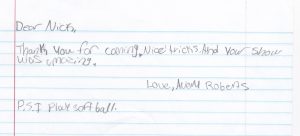 Dear Nick,
Thank you for coming. Nice tricks. And your show
was amazing.
Love, Roberts
P.S. I Play softball.